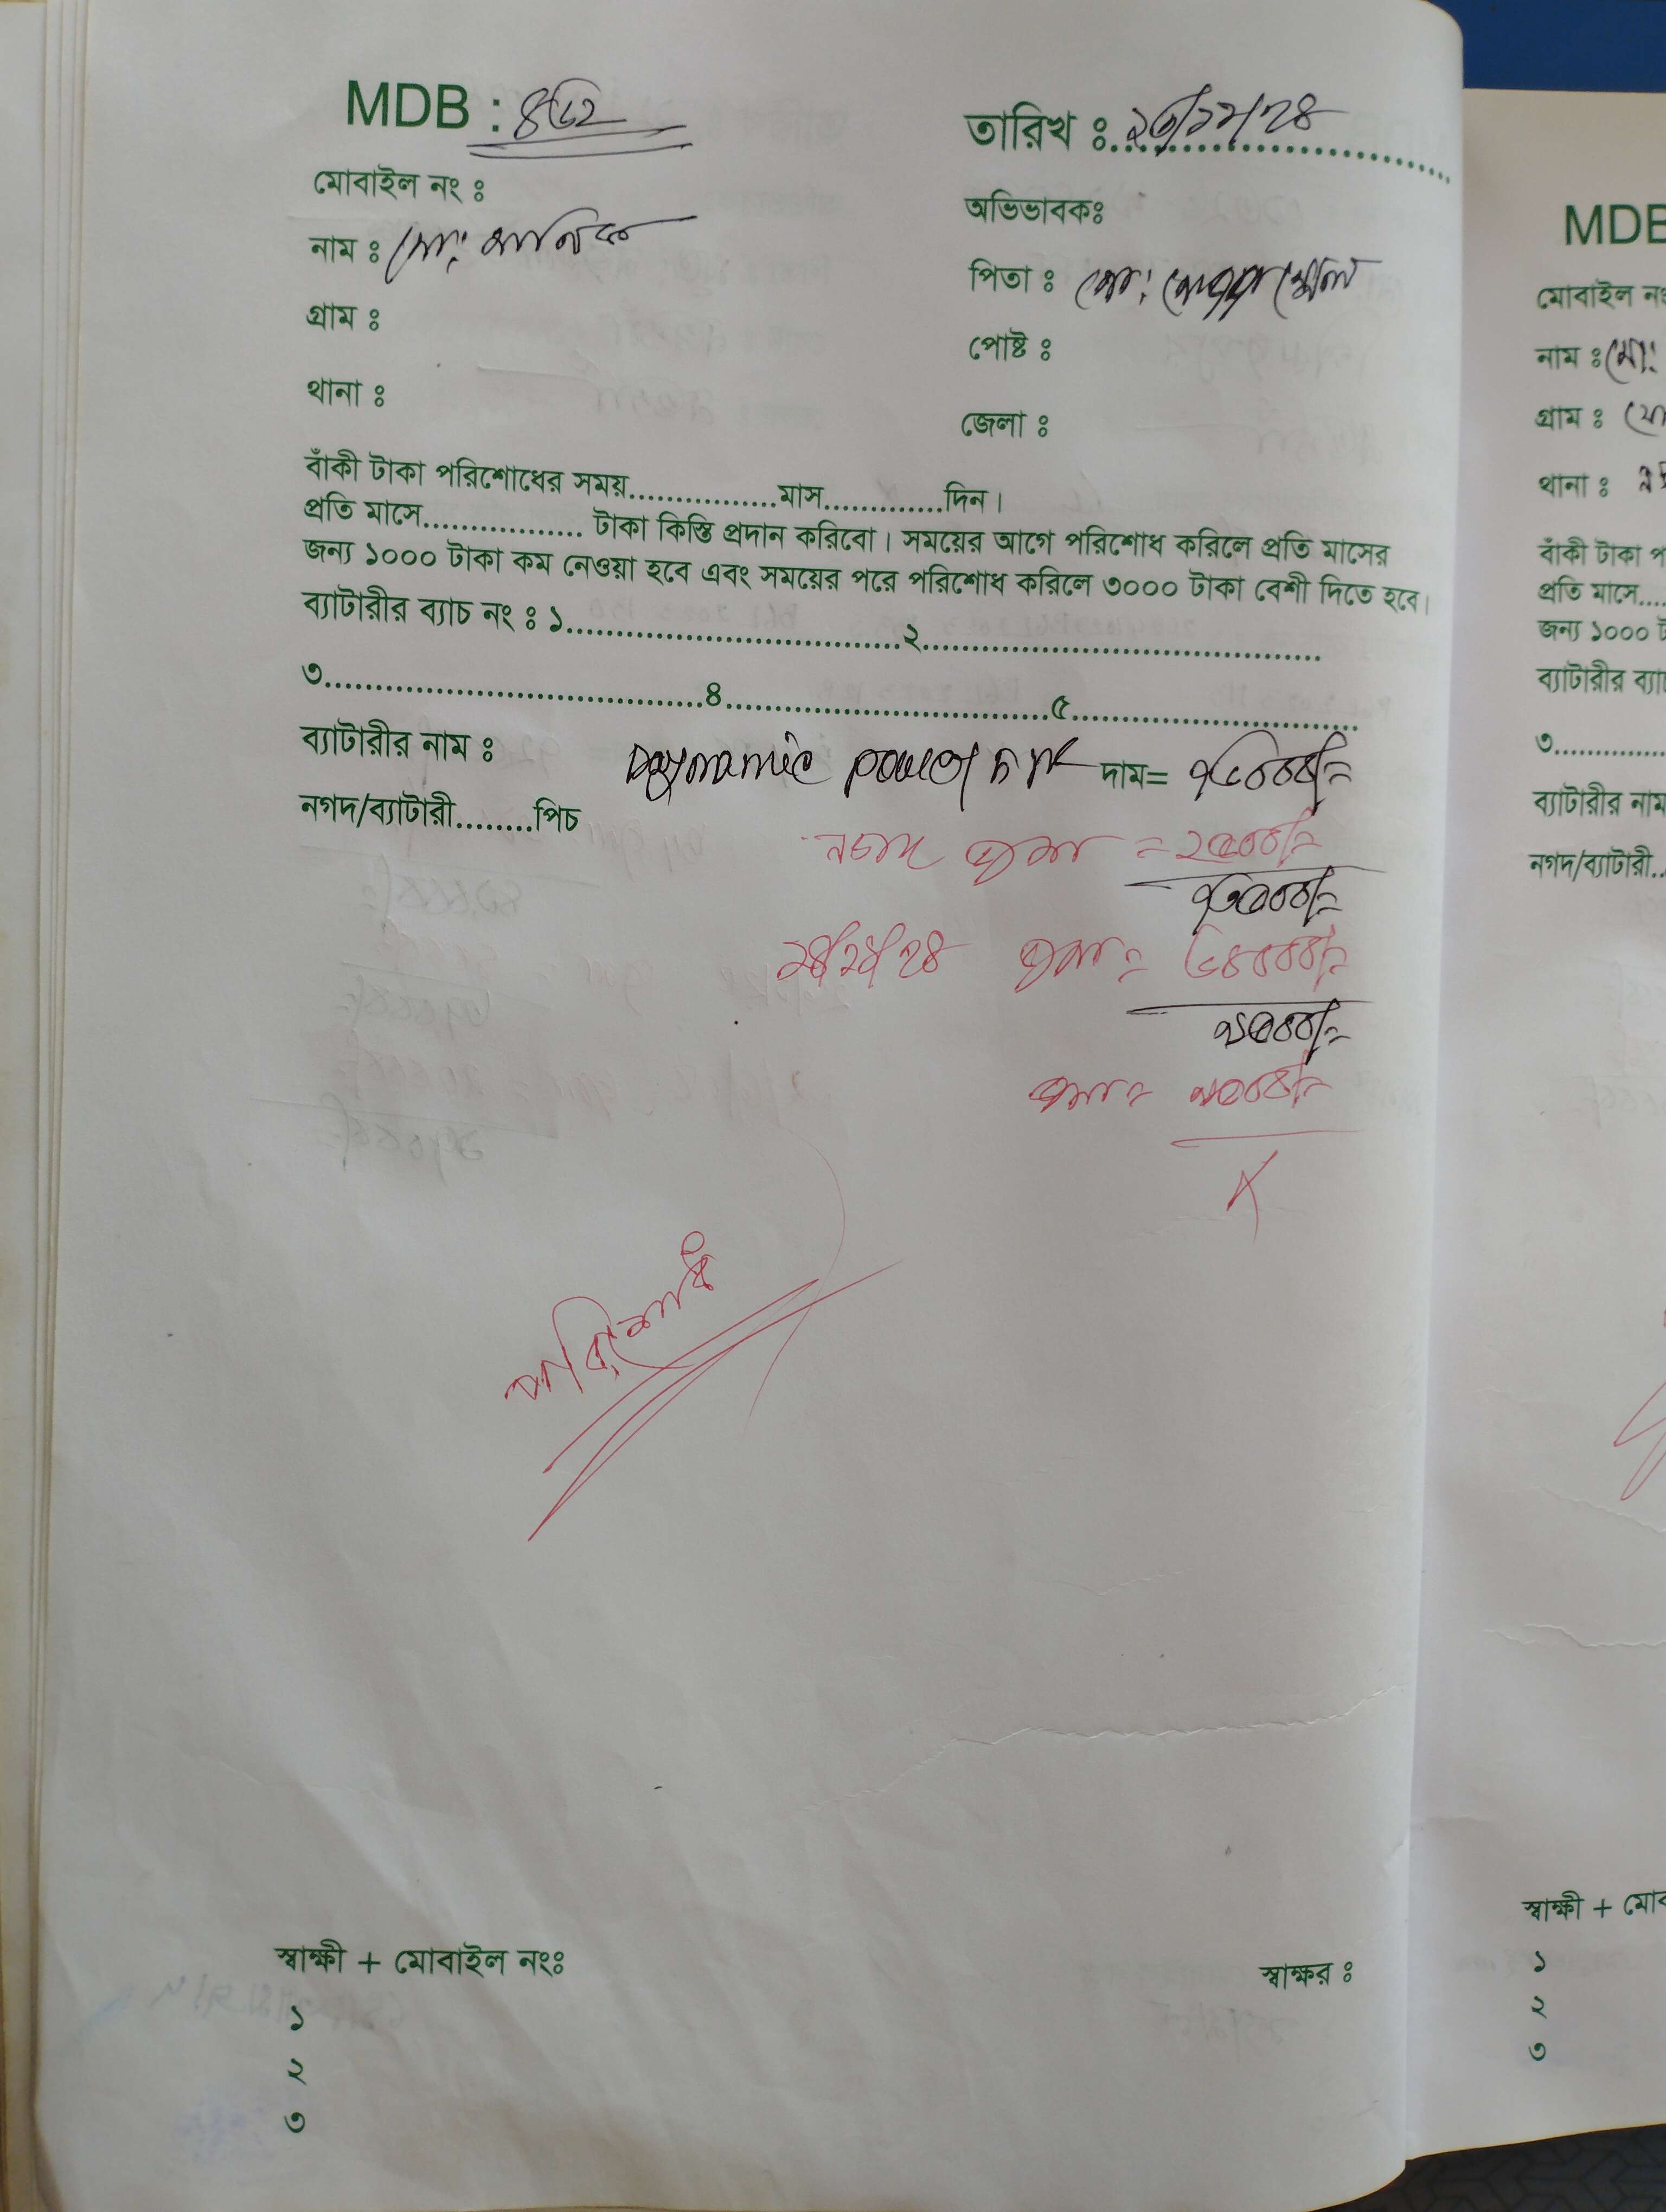 MDB : ৪৬২
তারিখ ঃ ২৩/১১/২৪
মোবাইল নং ঃ
অভিভাবকঃ
নাম ঃ মো: মানিক
পিতা ঃ মো:
গ্রাম ঃ
পোষ্ট ঃ
থানা ঃ
জেলা ঃ
বাঁকী টাকা পরিশোধের সময়................মাস.............দিন।
প্রতি মাসে................. টাকা কিস্তি প্রদান করিবো। সময়ের আগে পরিশোধ করিলে প্রতি মাসের
জন্য ১০০০ টাকা কম নেওয়া হবে এবং সময়ের পরে পরিশোধ করিলে ৩০০০ টাকা বেশী দিতে হবে।
ব্যাটারীর ব্যাচ নং ঃ ১....................................২...........................................
৩.........................................৪...................................৫...............................
ব্যাটারীর নাম ঃ Daynamic power দাম=
নগদ/ব্যাটারী........পিচ
নগদ জমা = ২৫০০/=
জমা =
জমা =
পরিশোধ
স্বাক্ষী + মোবাইল নংঃ
স্বাক্ষর ঃ
১
২
৩
MDB
মোবাইল নং
নাম ঃ মো:
গ্রাম ঃ
থানা ঃ
বাঁকী টাকা প
প্রতি মাসে....
জন্য ১০০০ ট
ব্যাটারীর ব্যা
৩..............
ব্যাটারীর নাম
নগদ/ব্যাটারী..
স্বাক্ষী + মোব
১
২
৩